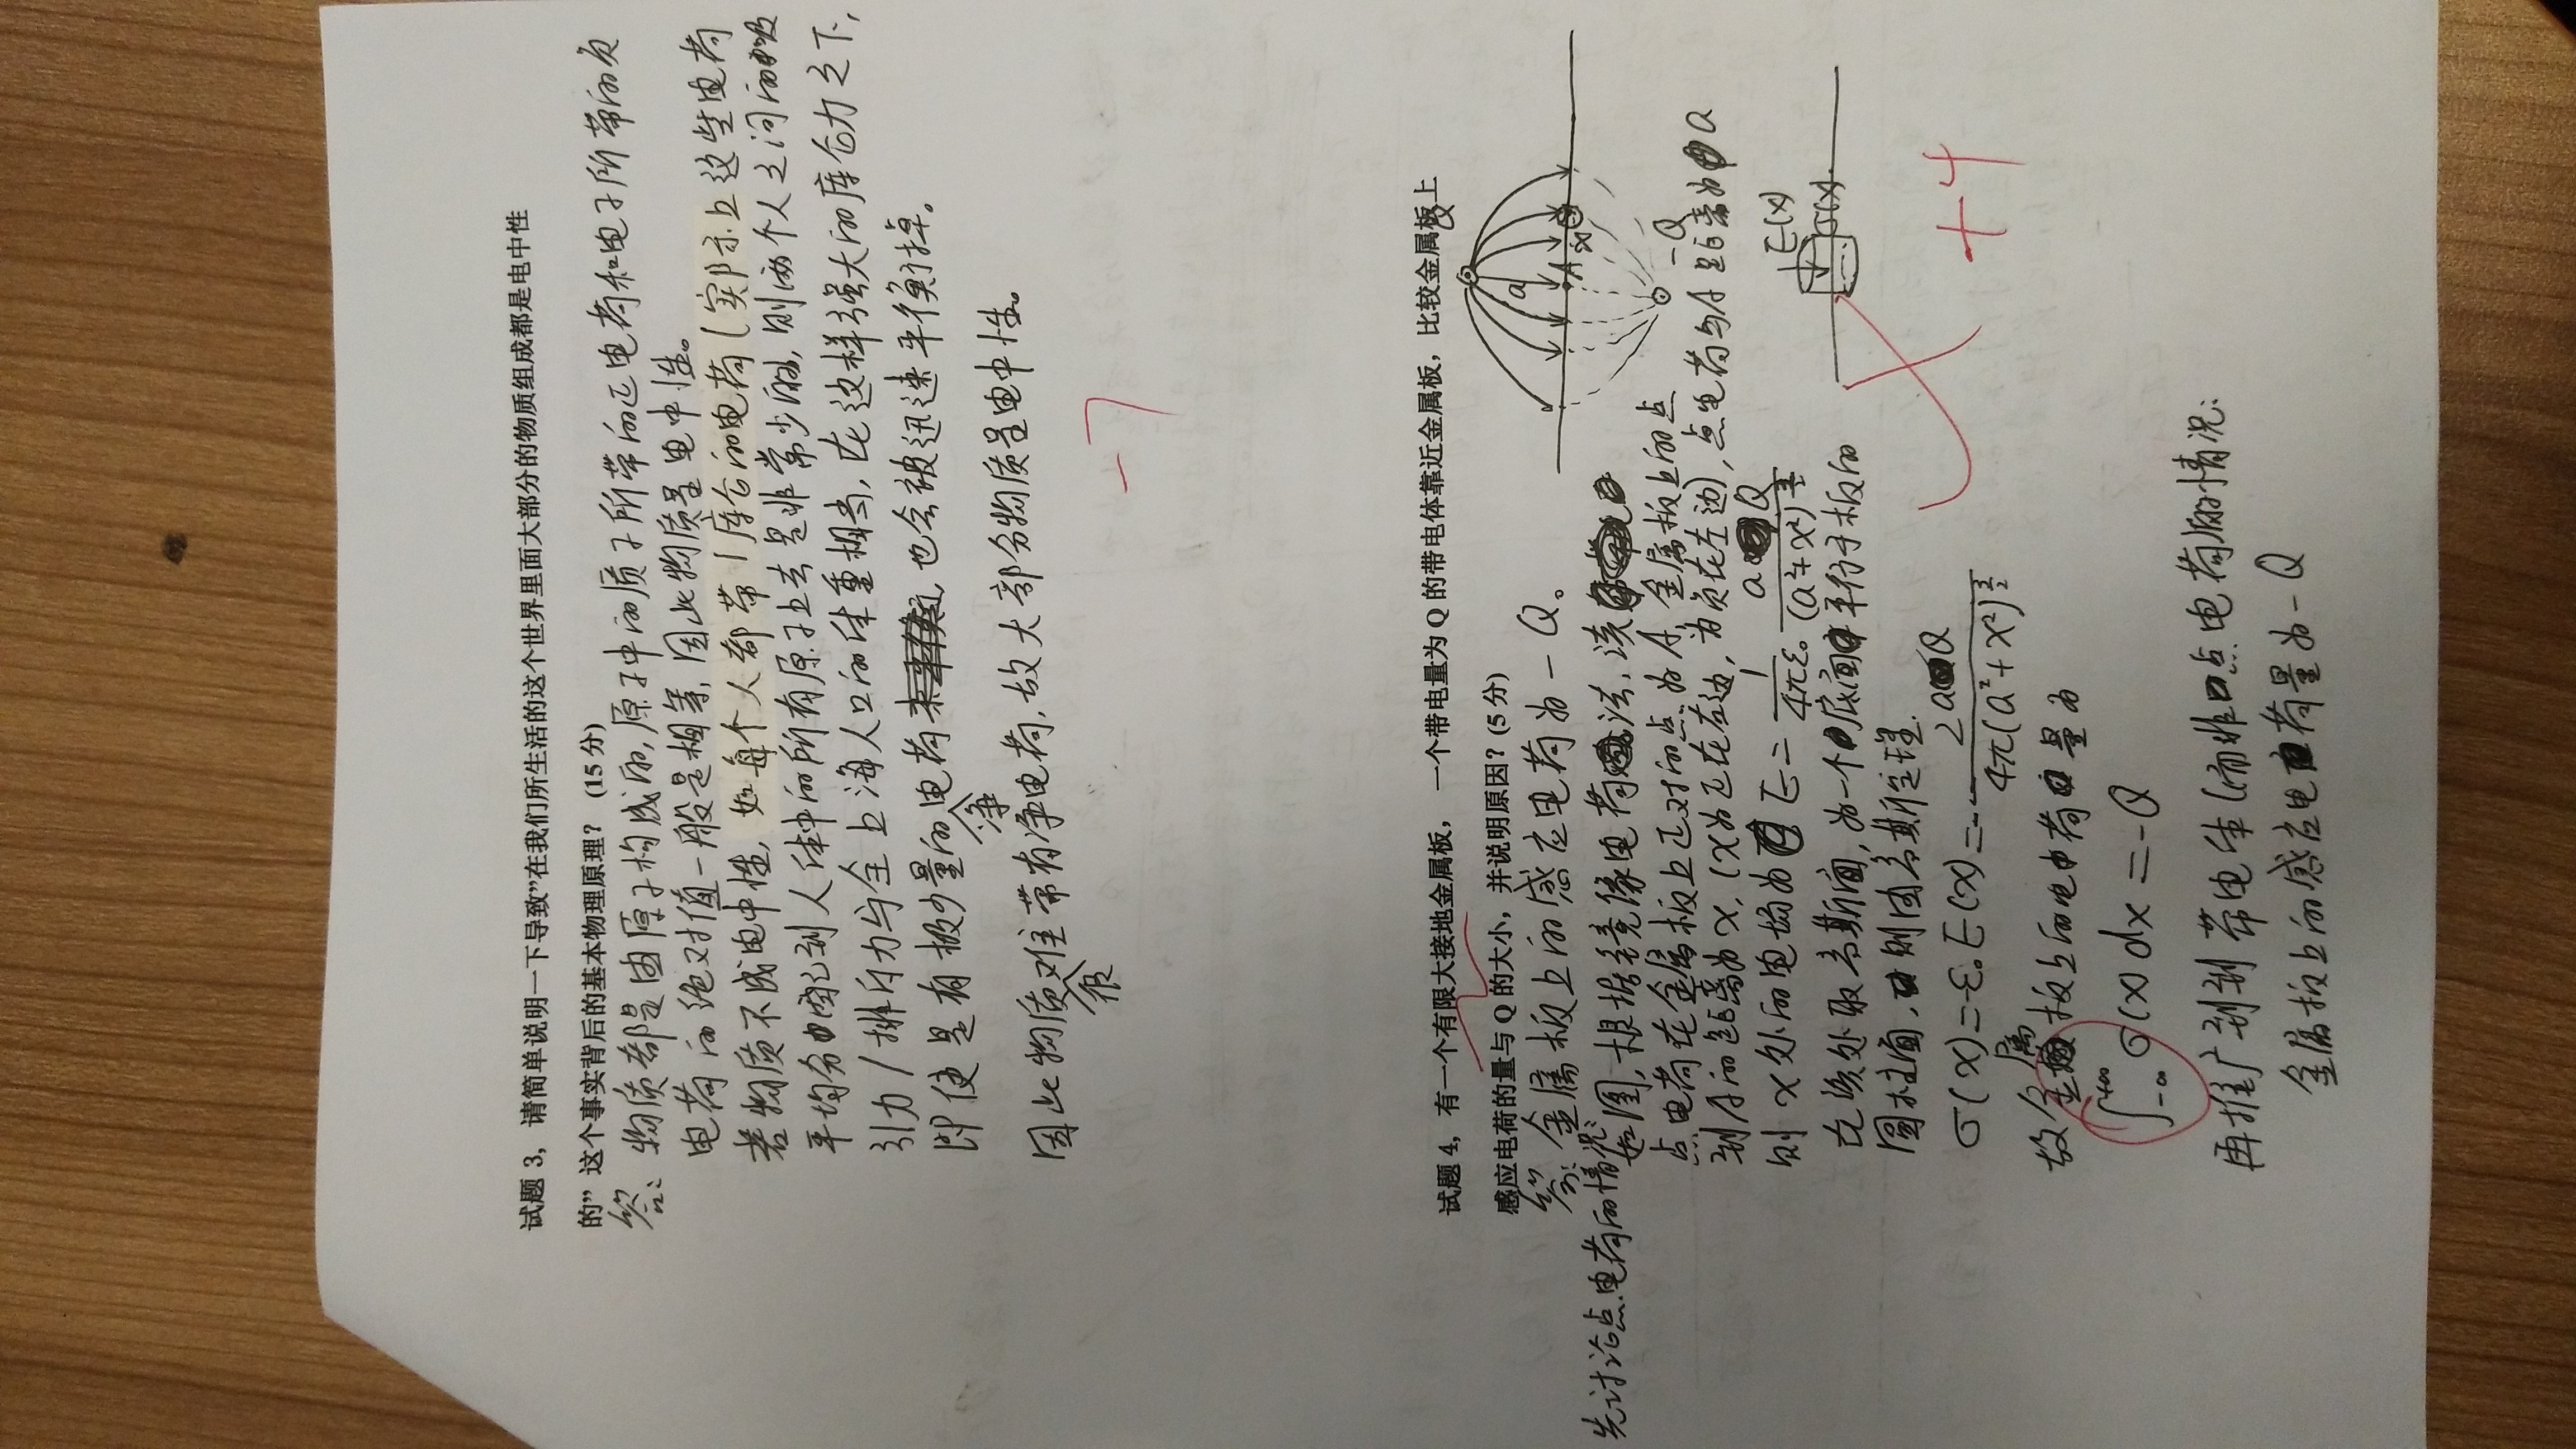 试题 3, 请简单说明一下导致”在我们所生活的这个世界里面大部分的物质组成都是电中性
的” 这个事实背后的基本物理原理? (15 分)
答: 物质都是由原子构成的, 原子中的质子所带的正电荷和电子所带的负
电荷的绝对值一般是相等, 因此物质呈电中性。
若物质不成电中性, 如每个人都带1库仑的电荷(实际上这些电荷
平均分配到人体中的所有原子上去是非常少的), 则两个人之间的吸
引力/排斥力与全上海人口的体重相当, 在这样强大的库仑力之下,
即使是有极少量的净电荷, 也会被迅速平衡掉。
因此物质很难带有净电荷, 故大部分物质呈电中性。
-7
试题 4, 有一个有限大接地金属板, 一个带电量为 Q 的带电体靠近金属板, 比较金属板上
感应电荷的量与 Q 的大小, 并说明原因? (5 分)
答: 金属板上的感应电荷为-Q。
先讨论点电荷的情况:
如图, 根据镜像电荷法, 该
点电荷在金属板上正对的点为A, 金属板上的点
到A的距离为x, (x为正在右边, 为负在左边), 点电荷与A距离为a
则 x 处的电场为 E = 1/4πε₀ aQ/(a²+x²)^{3/2}
在该处取高斯面, 为一个底面平行于板的
圆柱面, 则由高斯定理.
σ(x)=-ε₀E(x)=- 2aQ/4π(a²+x²)^{3/2}
故金属板上的电荷量为
∫_{-∞}^{+∞} σ(x) dx = -Q
再推广到到带电体(而非点电荷)的情况:
金属板上的感应电荷量为-Q
Q
a
A
x
-Q
E(x)
σ(x)
+4